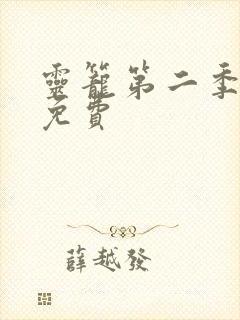 靈籠第二季
免費
薛越發